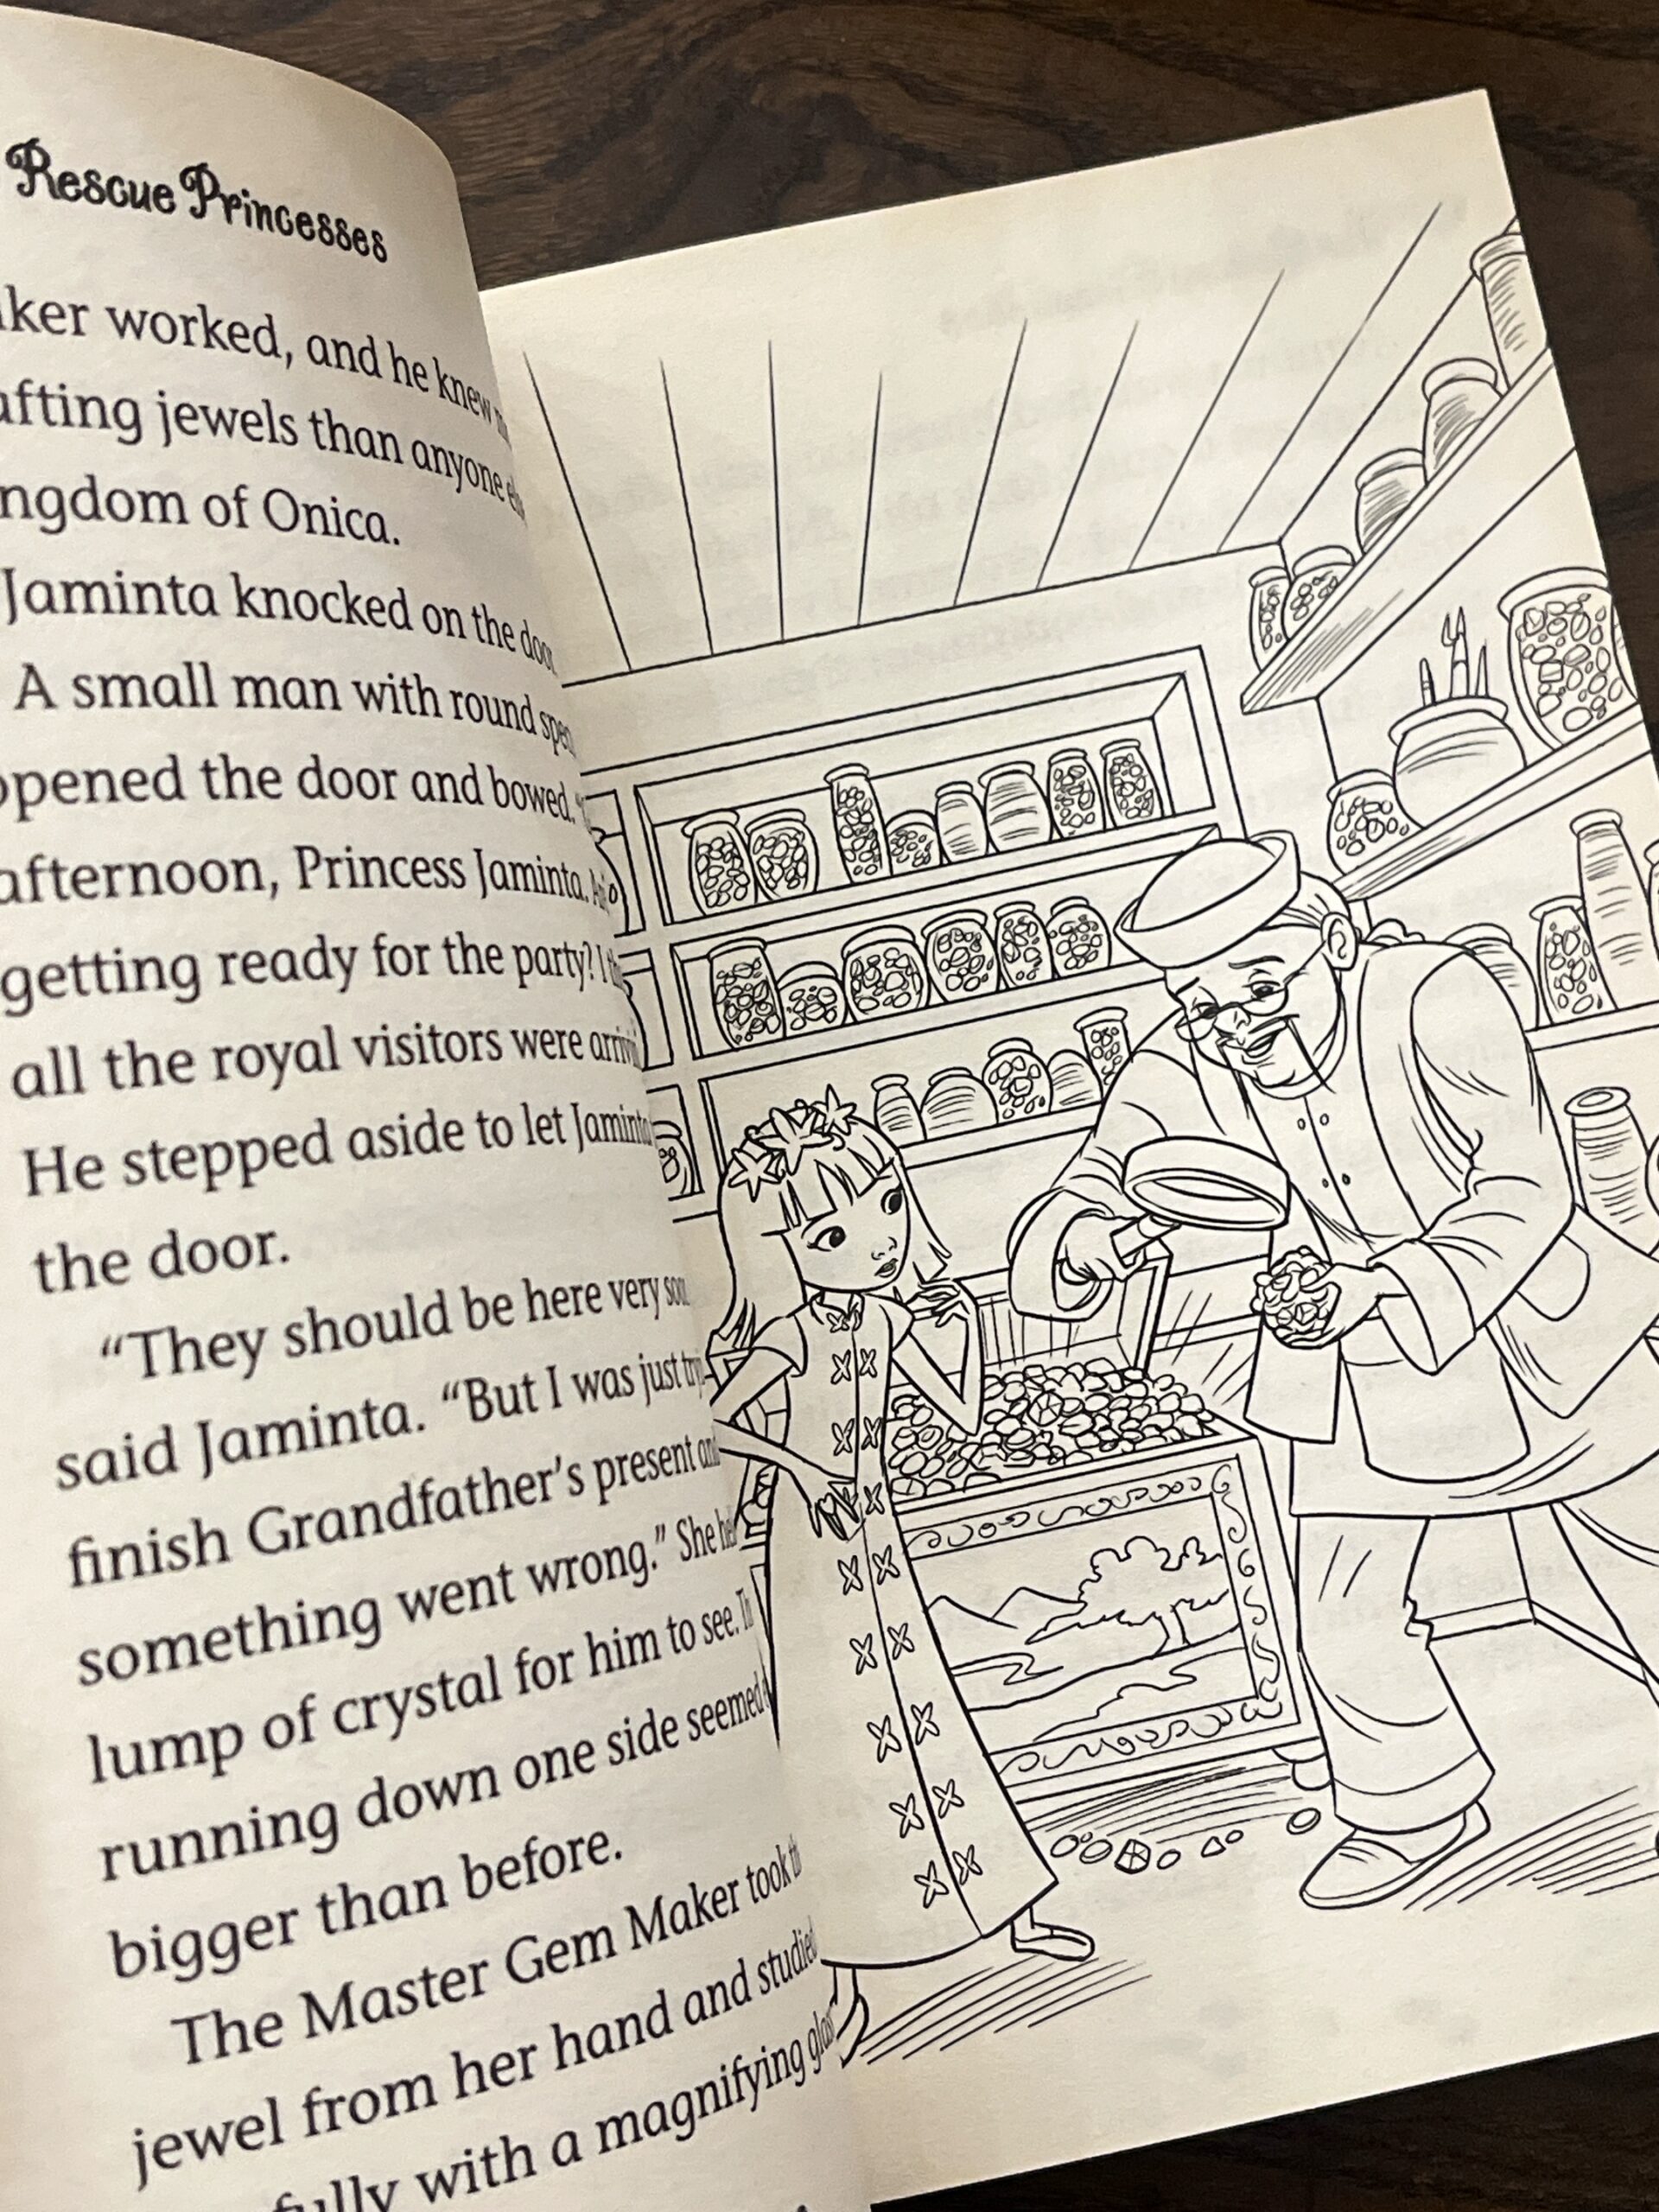 Rescue Princesses
worked, and he knew
jewels than anyone
of Onica.
Jaminta knocked on the door.
A small man with round
opened the door and bowed.
afternoon, Princess Jaminta.
getting ready for the party? I
all the royal visitors were
He stepped aside to let Jaminta
the door.
“They should be here very
said Jaminta. “But I was just
finish Grandfather’s present
something went wrong.” She
lump of crystal for him to see.
running down one side seemed
bigger than before.
The Master Gem Maker took
jewel from her hand and studied
with a magnifying